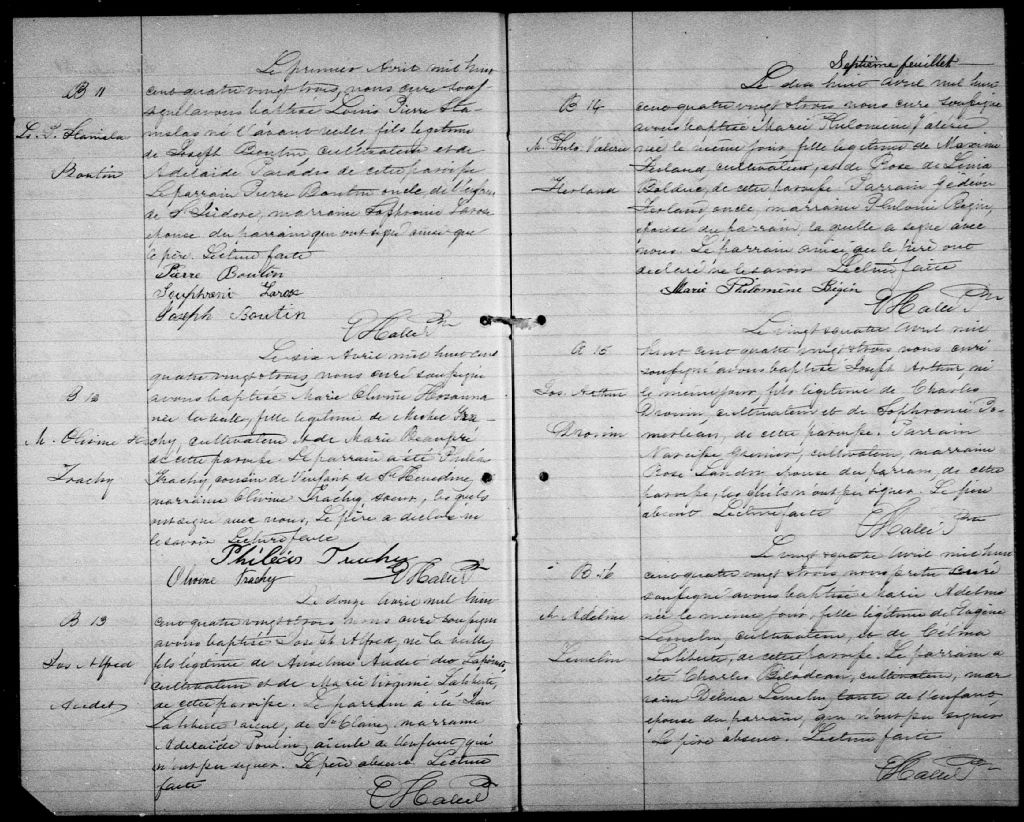 B 11
Ls. P. Stanisla
Boutin
Le premier Avril mil huit
cent quatre vingt trois, nous curé sous
signé avons baptisé Louis Pierre Sta-
nislas né l'avant veille fils légitime
de Joseph Boutin, cultivateur et de
Adelaide Paradis de cette paroisse
Le parrain Pierre Boutin oncle de
de St Isidore, marraine Sophronie
épouse du parrain qui ont signé ainsi que
le père. Lecture faite
Pierre Boutin
Souphroni
Joseph Boutin
Ptre
B 12
M. Olivine
Trachy
Le six Avril mil huit cent
quatre vingt trois nous curé soussigné
avons baptisé Marie Olivine Hosanna
née la veille, fille légitime de Michel Tra-
chy, cultivateur et de Marie Beaupré
de cette paroisse. Le parrain a été Philéas
Trachy, cousin de l'enfant de Ste Henedine,
marraine Olivine Trachy soeur, lesquels
ont signé avec nous, Le père a déclaré ne
le savoir Lecture faite
Philéas Trachy
Olivine Trachy
Ptre
B 13
Jos Alfred
Audet
Le douze Avril mil huit
cent quatre vingt trois nous curé soussigné
avons baptisé Joseph Alfred, né la veille
fils légitime de Anselme Audet dit Lapointe
cultivateur et de Marie Virginie Laliberté,
de cette paroisse. Le parrain a été Jean
Laliberté aïeul, de Ste Claire, marraine
Adelaïde Poulin, aïeule de l'enfant, qui
n'ont pu signer. Le père absent. Lecture
faite
Ptre
Septième feuillet
B 14
M. Philo Valérie
Ferland
Le dix huit avril mil huit
cent quatre vingt trois nous curé soussigné
avons baptisé Marie Philomène Valérie
née le même jour, fille légitime de Maxime
Ferland, cultivateur, et de Rose de Lima
Bolduc, de cette paroisse. Parrain Gédéon
Ferland oncle, marraine Philomène Bégin,
épouse du parrain, laquelle a signé avec
nous. Le parrain ainsi que le père ont
déclaré ne le savoir Lecture faite
Marie Philomène Bégin
Ptre
B 15
Jos. Arthur
Drouin
Le vingt quatre Avril mil
huit cent quatre vingt trois nous curé
soussigné avons baptisé Joseph Arthur né
le même jour, fils légitime de Charles
Drouin cultivateur et de Sophronie Po-
merleau, de cette paroisse. Parrain
Narcisse Grenier, cultivateur, marraine
Rose Landry épouse du parrain, de cette
paroisse, lesquels n'ont pu signer. Le père
absent Lecture faite
Ptre
B 16
M. Adelme
Lemelin
Le vingt quatre avril mil huit
cent quatre vingt trois nous prêtre curé
soussigné avons baptisé Marie Adelme
née le même jour, fille légitime de Eugène
Lemelin, cultivateur, et de Célina
Laliberté, de cette paroisse. Le parrain a
été Charles Bilodeau, cultivateur, mar-
raine Delvina Lemelin tante de l'enfant
épouse du parrain, qui n'ont pu signer
Le père absent. Lecture faite
Ptre